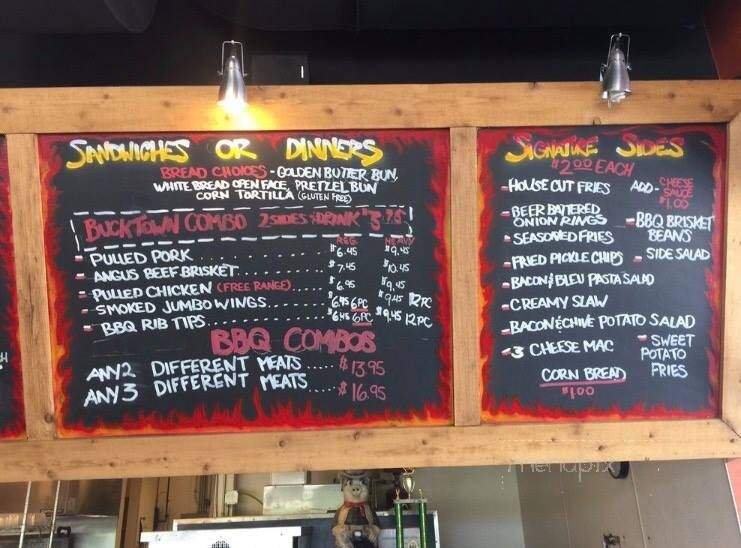 SANDWICHES OR DINNERS
BREAD CHOICES - GOLDEN BUTTER BUN,
WHITE BREAD OPEN FACE, PRETZEL BUN
CORN TORTILLA (GLUTEN FREE)
BUCKTOWN COMBO 2 SIDES + DRINK $3.75
REG. HEAVY
PULLED PORK $6.45 $9.45
ANGUS BEEF BRISKET $7.45 $10.45
PULLED CHICKEN (FREE RANGE) $6.95 $9.45
SMOKED JUMBO WINGS $6.45 6PC $9.45 12PC
BBQ RIB TIPS $6.45 6PC $9.45 12PC
BBQ COMBOS
ANY 2 DIFFERENT MEATS ..... $13.95
ANY 3 DIFFERENT MEATS ..... $16.95
SIGNATURE SIDES
$2.00 EACH
HOUSE CUT FRIES
ADD - CHEESE SAUCE
$1.00
BEER BATTERED
ONION RINGS
SEASONED FRIES
FRIED PICKLE CHIPS
BACON & BLEU PASTA SALAD
CREAMY SLAW
BACON & CHIVE POTATO SALAD
3 CHEESE MAC
BBQ BRISKET
BEANS
SIDE SALAD
SWEET
POTATO
FRIES
CORN BREAD
$1.00
menupix